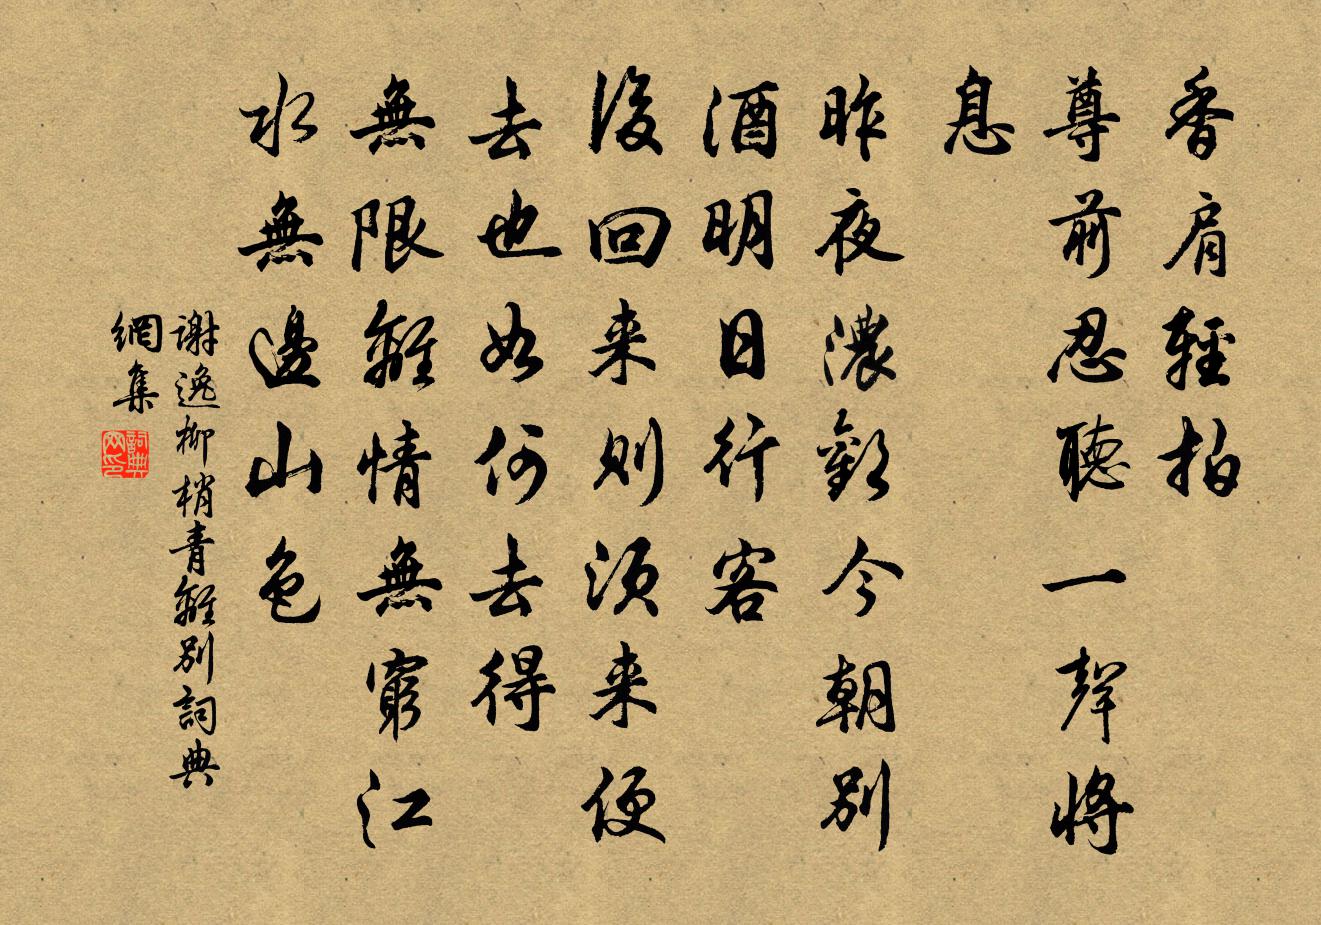 香肩輕拍
尊前忍聽一聲將
息
昨夜濃歡今朝別
酒明日行客
後回来則須来便
去也如何去得
無限離情無窮江
水無邊山色
謝逸柳梢青離別詞典
網集
詞典網印